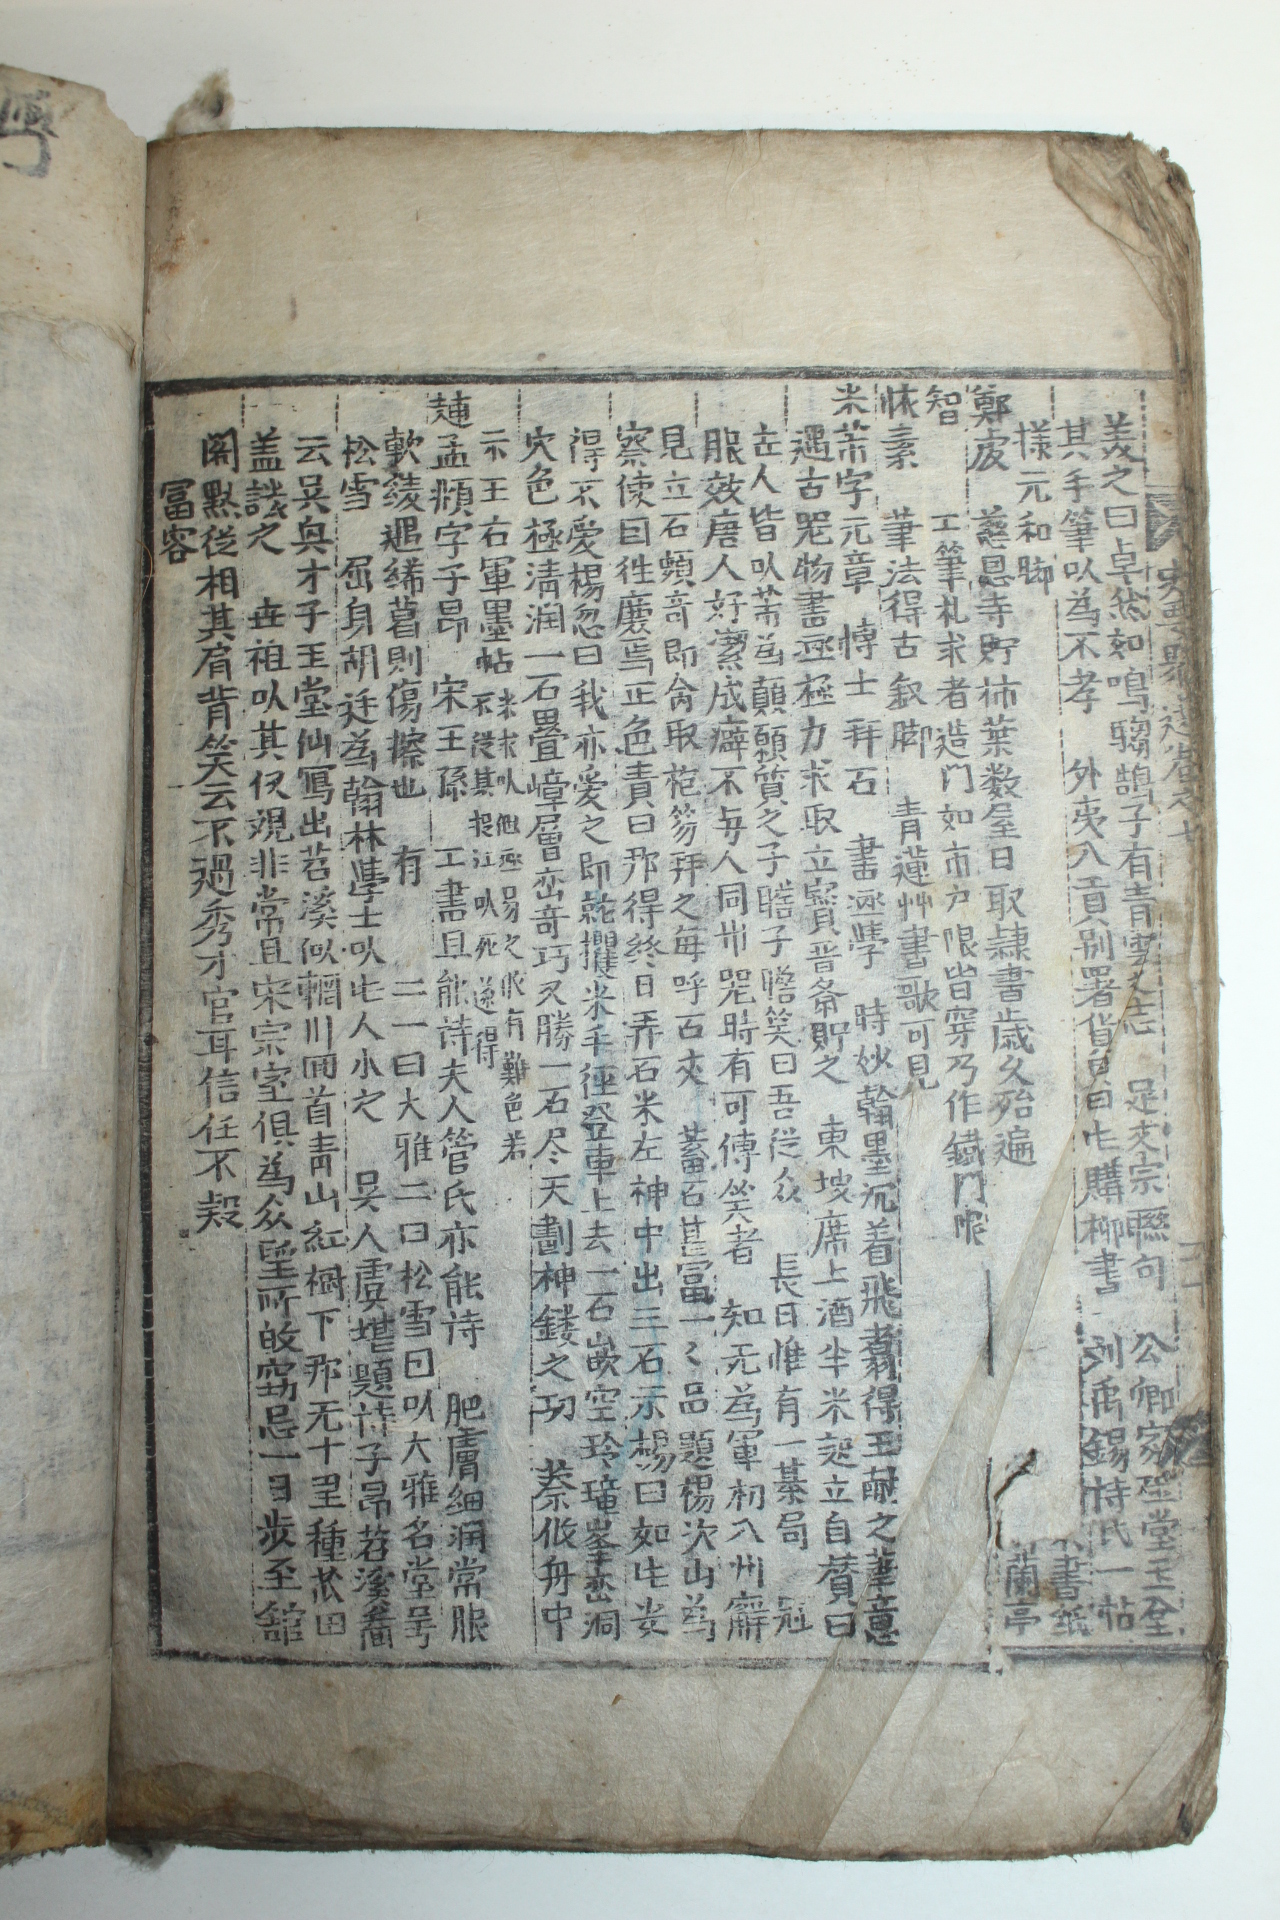 羙之曰卓然如鳴騶鵠子有青雲之志 足文宗聮句 公卿家碑堂玉全
其手筆以為不孝 外夷入貢別署貨貝曰此購柳書 刘禹錫持氏一帖
様元和脚 書紙
鄭虔 慈恩寺貯柿葉数屋日取隷書歳久殆遍 蘭亭
智 工筆札求者造門如市户限皆穿乃作鐵門
懐素 筆法得古釵脚 青蓮艸書歌可見
米芾字元章 博士拜石 書画學 時妙翰墨沉着飛翥得王献之筆意
遇古器物書画極力求取立寳晋斎貯之 東坡席上酒半米起立自賛曰
世人皆以芾為顛願質之子瞻子瞻笑曰吾従众 長日惟有一棊局 冠
服效唐人好潔成癖不与人同卅器時有可傅笑者 知无為軍初入州廨
見立石頗竒即命取袍笏拜之每呼石丈 蓄石甚冨一〻品題楊次山為
察使曰徃慶焉正色責曰那得終日弄石米左袖中出三石示楊曰如此石
得不爱楊忽曰我亦爱之即就攫米手徑登車上去一石嵌空玲瓏峯峦洞
穴色極淸润一石畳嶂層峦竒巧又勝一石尽天劃神鏤之功 蔡攸舟中
示王右軍墨帖 米求以他画易之攸有難色若
不従其投江以死遂得
趙孟頫字子昂 宋王孫 工書且能诗夫人管氏亦能诗 肥膚細润常服
軟綾遇絺葛則傷擦也 有 二一曰大雅二曰松雪曰以大雅名堂号
松雪 屈身胡廷為翰林學士以此人小之 吴人虞堪題诗子昂苕溪畵
云吴兴才子玉堂仙寫出苕溪似輞川囬首靑山紅樹下那无十里種苽田
盖譏之 世祖以其仪观非常且宋宗室俱為众望所攽窃忌一日步至舘
閣黙従相其肩背笑云不過秀才官耳信任不殺
冨客